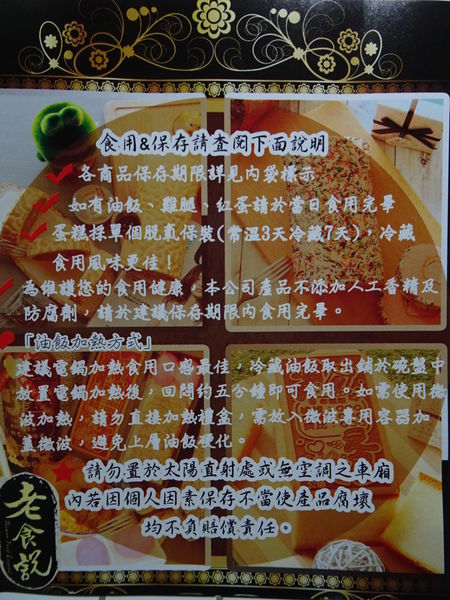 食用&保存請查閱下面說明
各商品保存期限詳見內袋標示
如有油飯、雞腿、紅蛋請於當日食用完畢
蛋糕採單個脫氧保裝(常溫3天冷藏7天)，冷藏
食用風味更佳！
為維護您的食用健康，本公司產品不添加人工香精及
防腐劑，請於建議保存期限內食用完畢。
「油飯加熱方式」
建議電鍋加熱食用口感最佳，冷藏油飯取出鋪於碗盤中
放置電鍋加熱後，回悶約五分鐘即可食用。如需使用微
波加熱，請勿直接加熱禮盒，需放入微波專用容器加
蓋微波，避免上層油飯硬化。
請勿置於太陽直射處或無空調之車廂
內若因個人因素保存不當使產品腐壞
均不負賠償責任。
老食說